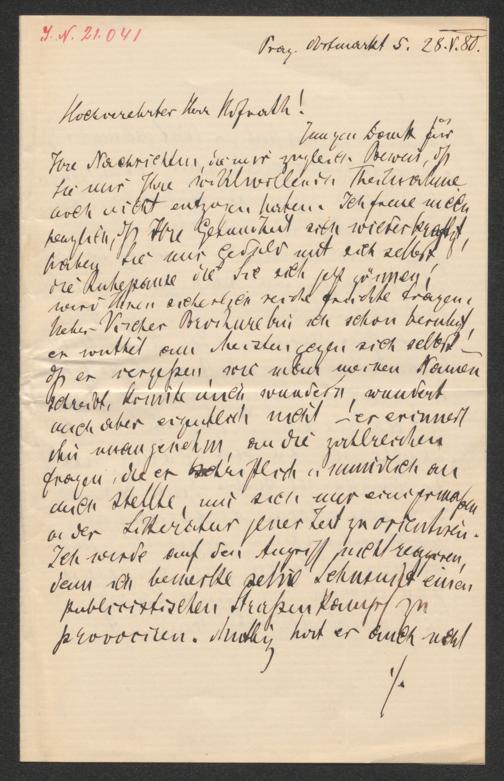 I. N. 21.041
Prag. Obstmarkt 5. 28.V.80.
Hochverehrter Herr Hofrath!
Innigen Dank für
Ihre Nachrichten, die mir zugleich Beweis, dß
Sie mir Ihre wohlwollende Theilnahme
noch nicht entzogen haben. Ich freue mich
herzlich, dß Ihre Gesundheit sich wieder kräftigt,
haben Sie nur Geduld mit sich selbst!
die Ruhepause die Sie sich jetzt gönnen,
wird Ihnen sicherlich reiche Früchte tragen.
Ueber Vischer Brochure bin ich schon beruhigt,
er wüthet am Meisten gegen sich selbst –
dß er vergeßen wie man meinen Namen
schreibt, könnte mich wundern, wundert
mich aber eigentlich nicht – er erinnert
ihn unangenehm an die zahlreichen
Fragen, die er schriftlich u. mündlich an
mich stellte, um sich nur einigermaßen
in der Litteratur jener Zeit zu orientiren.
Ich werde auf den Angriff nicht reagiren,
denn ich bemerke seine Sehnsucht einen
publicistischen Straßenkampf zu
provociren. Muthig hat er auch nicht
./.